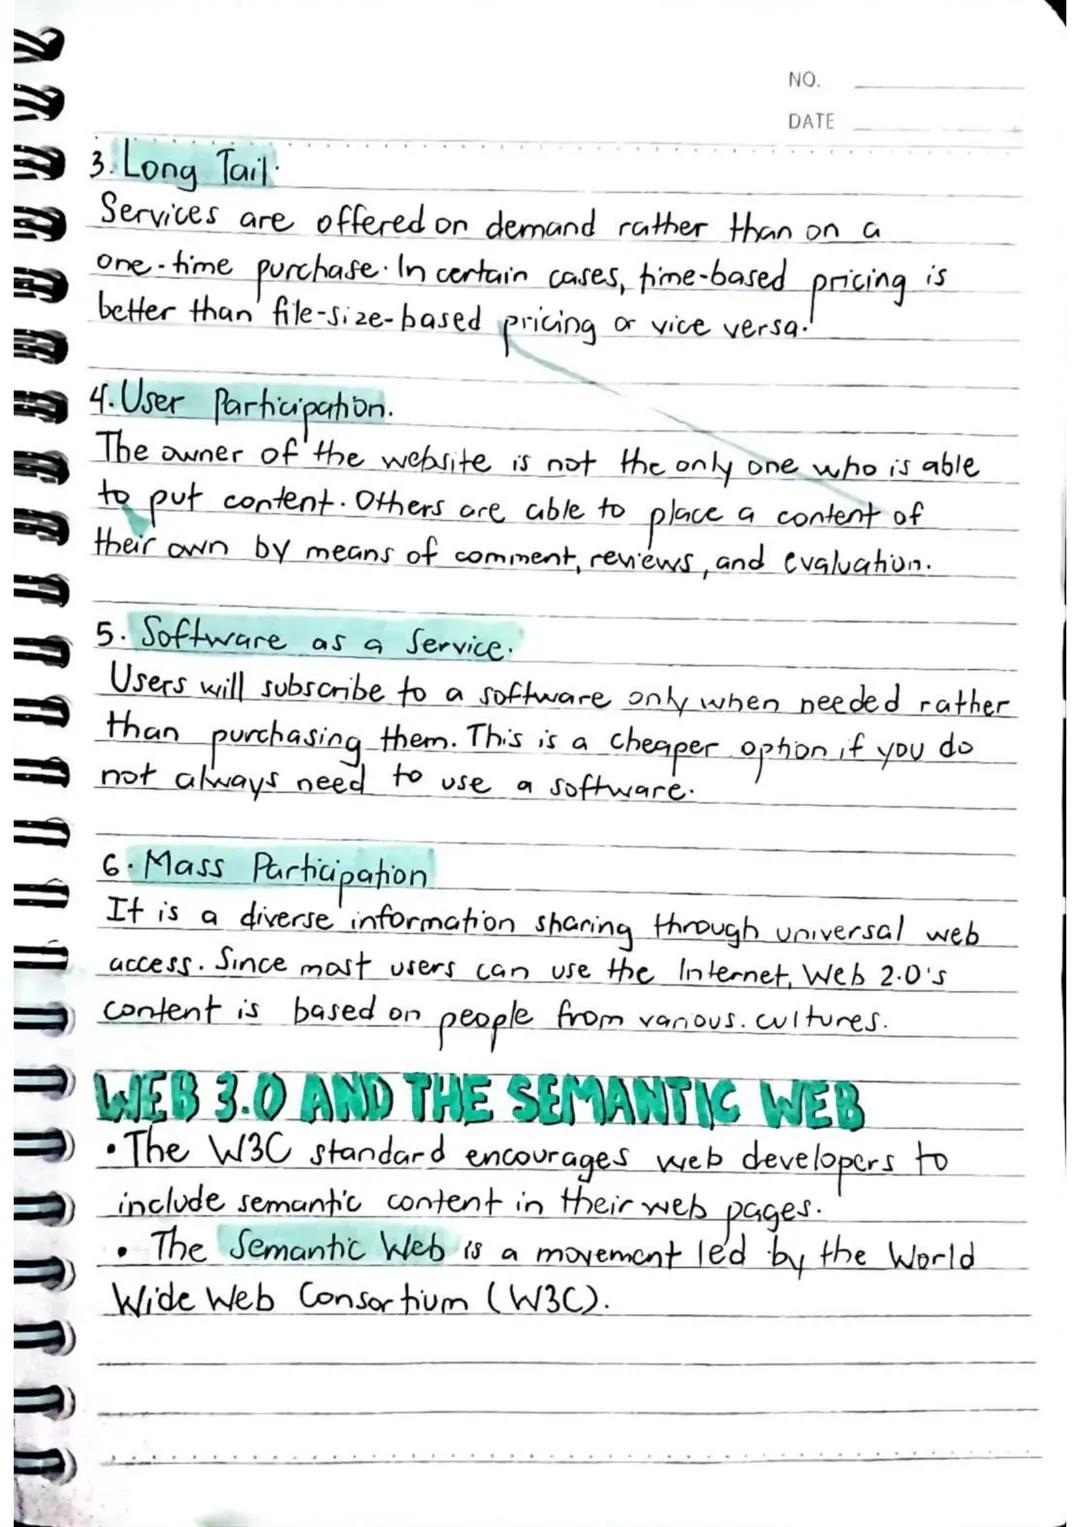 NO.
DATE
3. Long Tail.
Services are offered on demand rather than on a
one-time purchase. In certain cases, time-based pricing is
better than file-size-based pricing or vice versa.
4. User Participation.
The owner of the website is not the only one who is able
to put content. Others are able to place a content of
their own by means of comment, reviews, and evaluation.
5. Software as a Service.
Users will subscribe to a software only when needed rather
than purchasing them. This is a cheaper option if you do
not always need to use a software.
6. Mass Participation
It is a diverse information sharing through universal web
access. Since most users can use the Internet, Web 2.0's
content is based on people from various. cultures.
WEB 3.0 AND THE SEMANTIC WEB
• The W3C standard encourages web developers to
include semantic content in their web pages.
• The Semantic Web is a movement led by the World
Wide Web Consortium (W3C).